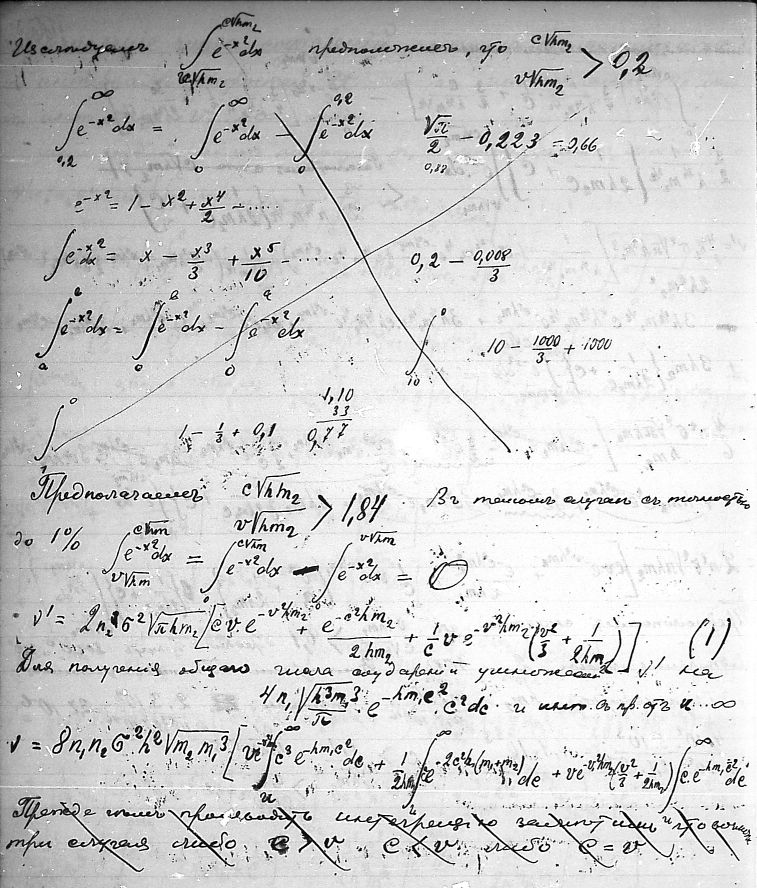 Исследуемъ ∫_{v√hm₂}^{c√hm₂} e^{-x²}dx предположемъ, что c√hm₂ / v√hm₂ > 0,2
∫_{0,2}^{∞} e^{-x²}dx = ∫_0^{∞} e^{-x²}dx − ∫_0^{0,2} e^{-x²}dx √π/2 − 0,223 = 0,66
0,88
e^{-x²} = 1 − x² + x⁴/2 − .....
∫e^{-x²}dx = x − x³/3 + x⁵/10 − ..... 0,2 − 0,008/3
∫_a^b e^{-x²}dx = ∫_0^b e^{-x²}dx − ∫_0^a e^{-x²}dx ∫_{10}^0 10 − 1000/3 + 1000
1,10
33
∫_1^0 1 − 1/3 + 0,1 0,77
Предполагаемъ c√hm₂ / v√hm₂ > 1,84 Въ такомъ случаѣ съ точностью
до 1% ∫_{v√hm}^{c√hm} e^{-x²}dx = ∫_0^{c√hm} e^{-x²}dx − ∫_0^{v√hm} e^{-x²}dx = 0
ν' = 2n₂σ²√πhm₂ [c v e^{-v²hm₂} + e^{-c²hm₂}/2hm₂ + 1/c v e^{-v²hm₂}(v²/3 + 1/2hm)] (1)
Для полученія общаго числа ударенiй умножаемъ ν' на
4n₁√(h³m₁³/π) e^{-hm₁c²} c²dc и инт. въ пр. отъ u ... ∞
ν = 8n₁n₂σ²h²√m₂m₁³ [ve^{-v²} ∫_u^∞ c³e^{-hm₁c²}dc + 1/2hm₂ ∫_u^∞ e^{-2c²h(m₁+m₂)}dc + ve^{-v²hm₂}(v²/3 + 1/2hm₂) ∫_u^∞ c.e^{-hm₁c²}dc
Прежде чѣмъ производить интеграцію замѣтимъ что
три случая либо c > v c < v либо c = v